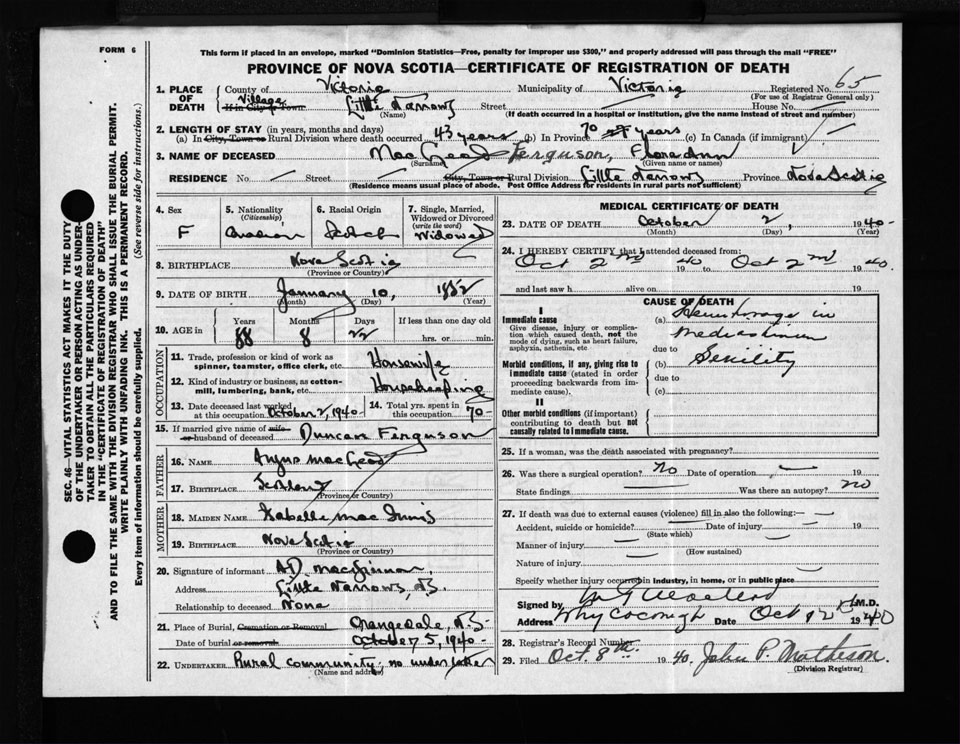 FORM 6
This form if placed in an envelope, marked "Dominion Statistics—Free, penalty for improper use $300," and properly addressed will pass through the mail "FREE"
PROVINCE OF NOVA SCOTIA—CERTIFICATE OF REGISTRATION OF DEATH
1. PLACE OF DEATH County of Victoria Municipality of Victoria Registered No. 65
(For use of Registrar General only)
Village If in City or Town Little Narrows Street House No.
(Name) (If death occurred in a hospital or institution, give the name instead of street and number)
2. LENGTH OF STAY (in years, months and days)
(a) In City, Town or Rural Division where death occurred 43 years (b) In Province 70 years (c) In Canada (if immigrant)
3. NAME OF DECEASED MacLeod Ferguson, Flora Ann
(Surname) (Given name or names)
RESIDENCE No. Street City, Town or Rural Division Little Narrows Province Nova Scotia
(Residence means usual place of abode. Post Office Address for residents in rural parts not sufficient)
4. Sex F
5. Nationality (Citizenship) Canadian
6. Racial Origin Scotch
7. Single, Married, Widowed or Divorced (write the word) Widowed
8. BIRTHPLACE Nova Scotia
(Province or Country)
9. DATE OF BIRTH January 10, 1852
(Month) (Day) (Year)
10. AGE in Years Months Days If less than one day old
88 8 22 hrs. or min.
OCCUPATION
11. Trade, profession or kind of work as spinner, teamster, office clerk, etc. Housewife
12. Kind of industry or business, as cotton-mill, lumbering, bank, etc. Housekeeping
13. Date deceased last worked at this occupation October 2, 1940 14. Total yrs. spent in this occupation 70
15. If married give name of wife or husband of deceased Duncan Ferguson
FATHER
16. NAME Angus MacLeod
17. BIRTHPLACE Scotland
(Province or Country)
MOTHER
18. MAIDEN NAME Isabelle MacInnis
19. BIRTHPLACE Nova Scotia
(Province or Country)
20. Signature of informant A D MacKinnon
Address Little Narrows, C.B.
Relationship to deceased None
21. Place of Burial, Cremation or Removal Orangedale, C.B.
Date of burial or removal October 5, 1940
22. UNDERTAKER Rural community; no undertaker
(Name and address)
MEDICAL CERTIFICATE OF DEATH
23. DATE OF DEATH October 2, 1940
(Month) (Day) (Year)
24. I HEREBY CERTIFY that I attended deceased from:
Oct 2nd 1940 to Oct 2nd 1940
and last saw h alive on 19
CAUSE OF DEATH
I
Immediate cause
Give disease, injury or complication which caused death, not the mode of dying, such as heart failure, asphyxia, asthenia, etc
(a) Hemorrhage in Mediastinum
due to
Morbid conditions, if any, giving rise to immediate cause (stated in order proceeding backwards from immediate cause).
(b) Senility
due to
(c)
II
Other morbid conditions (if important) contributing to death but not causally related to immediate cause.
25. If a woman, was the death associated with pregnancy?
26. Was there a surgical operation? No Date of operation 19
State findings Was there an autopsy? No
27. If death was due to external causes (violence) fill in also the following:—
Accident, suicide or homicide? Date of injury 19
(State which)
Manner of injury
(How sustained)
Nature of injury
Specify whether injury occurred in industry, in home, or in public place
Signed by M.D.
Address Whycocomagh Date Oct 2nd 1940
28. Registrar's Record Number
29. Filed Oct. 8th 1940. John P. Matheson.
(Division Registrar)
SEC. 46—VITAL STATISTICS ACT MAKES IT THE DUTY OF THE UNDERTAKER OR PERSON ACTING AS UNDERTAKER TO OBTAIN ALL THE PARTICULARS REQUIRED IN THE "CERTIFICATE OF REGISTRATION OF DEATH" AND TO FILE THE SAME WITH THE DIVISION REGISTRAR WHO SHALL ISSUE THE BURIAL PERMIT.
WRITE PLAINLY WITH UNFADING INK. THIS IS A PERMANENT RECORD.
Every item of information should be carefully supplied. (See reverse side for instructions.)